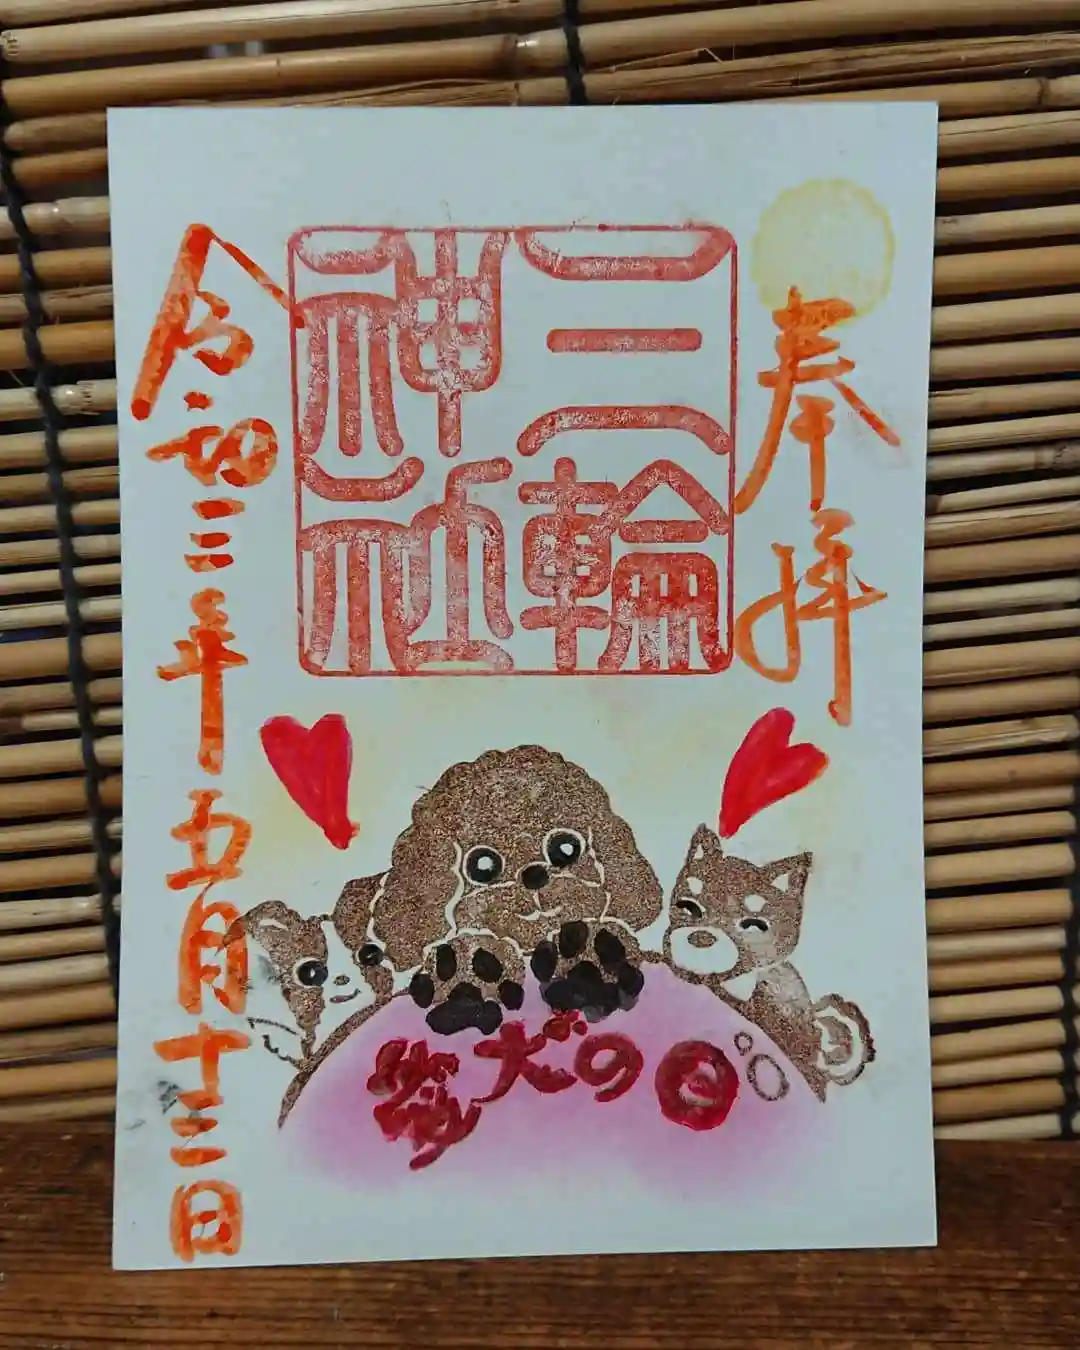 奉拝
三輪
神社
令和三年五月十三日
愛犬の日